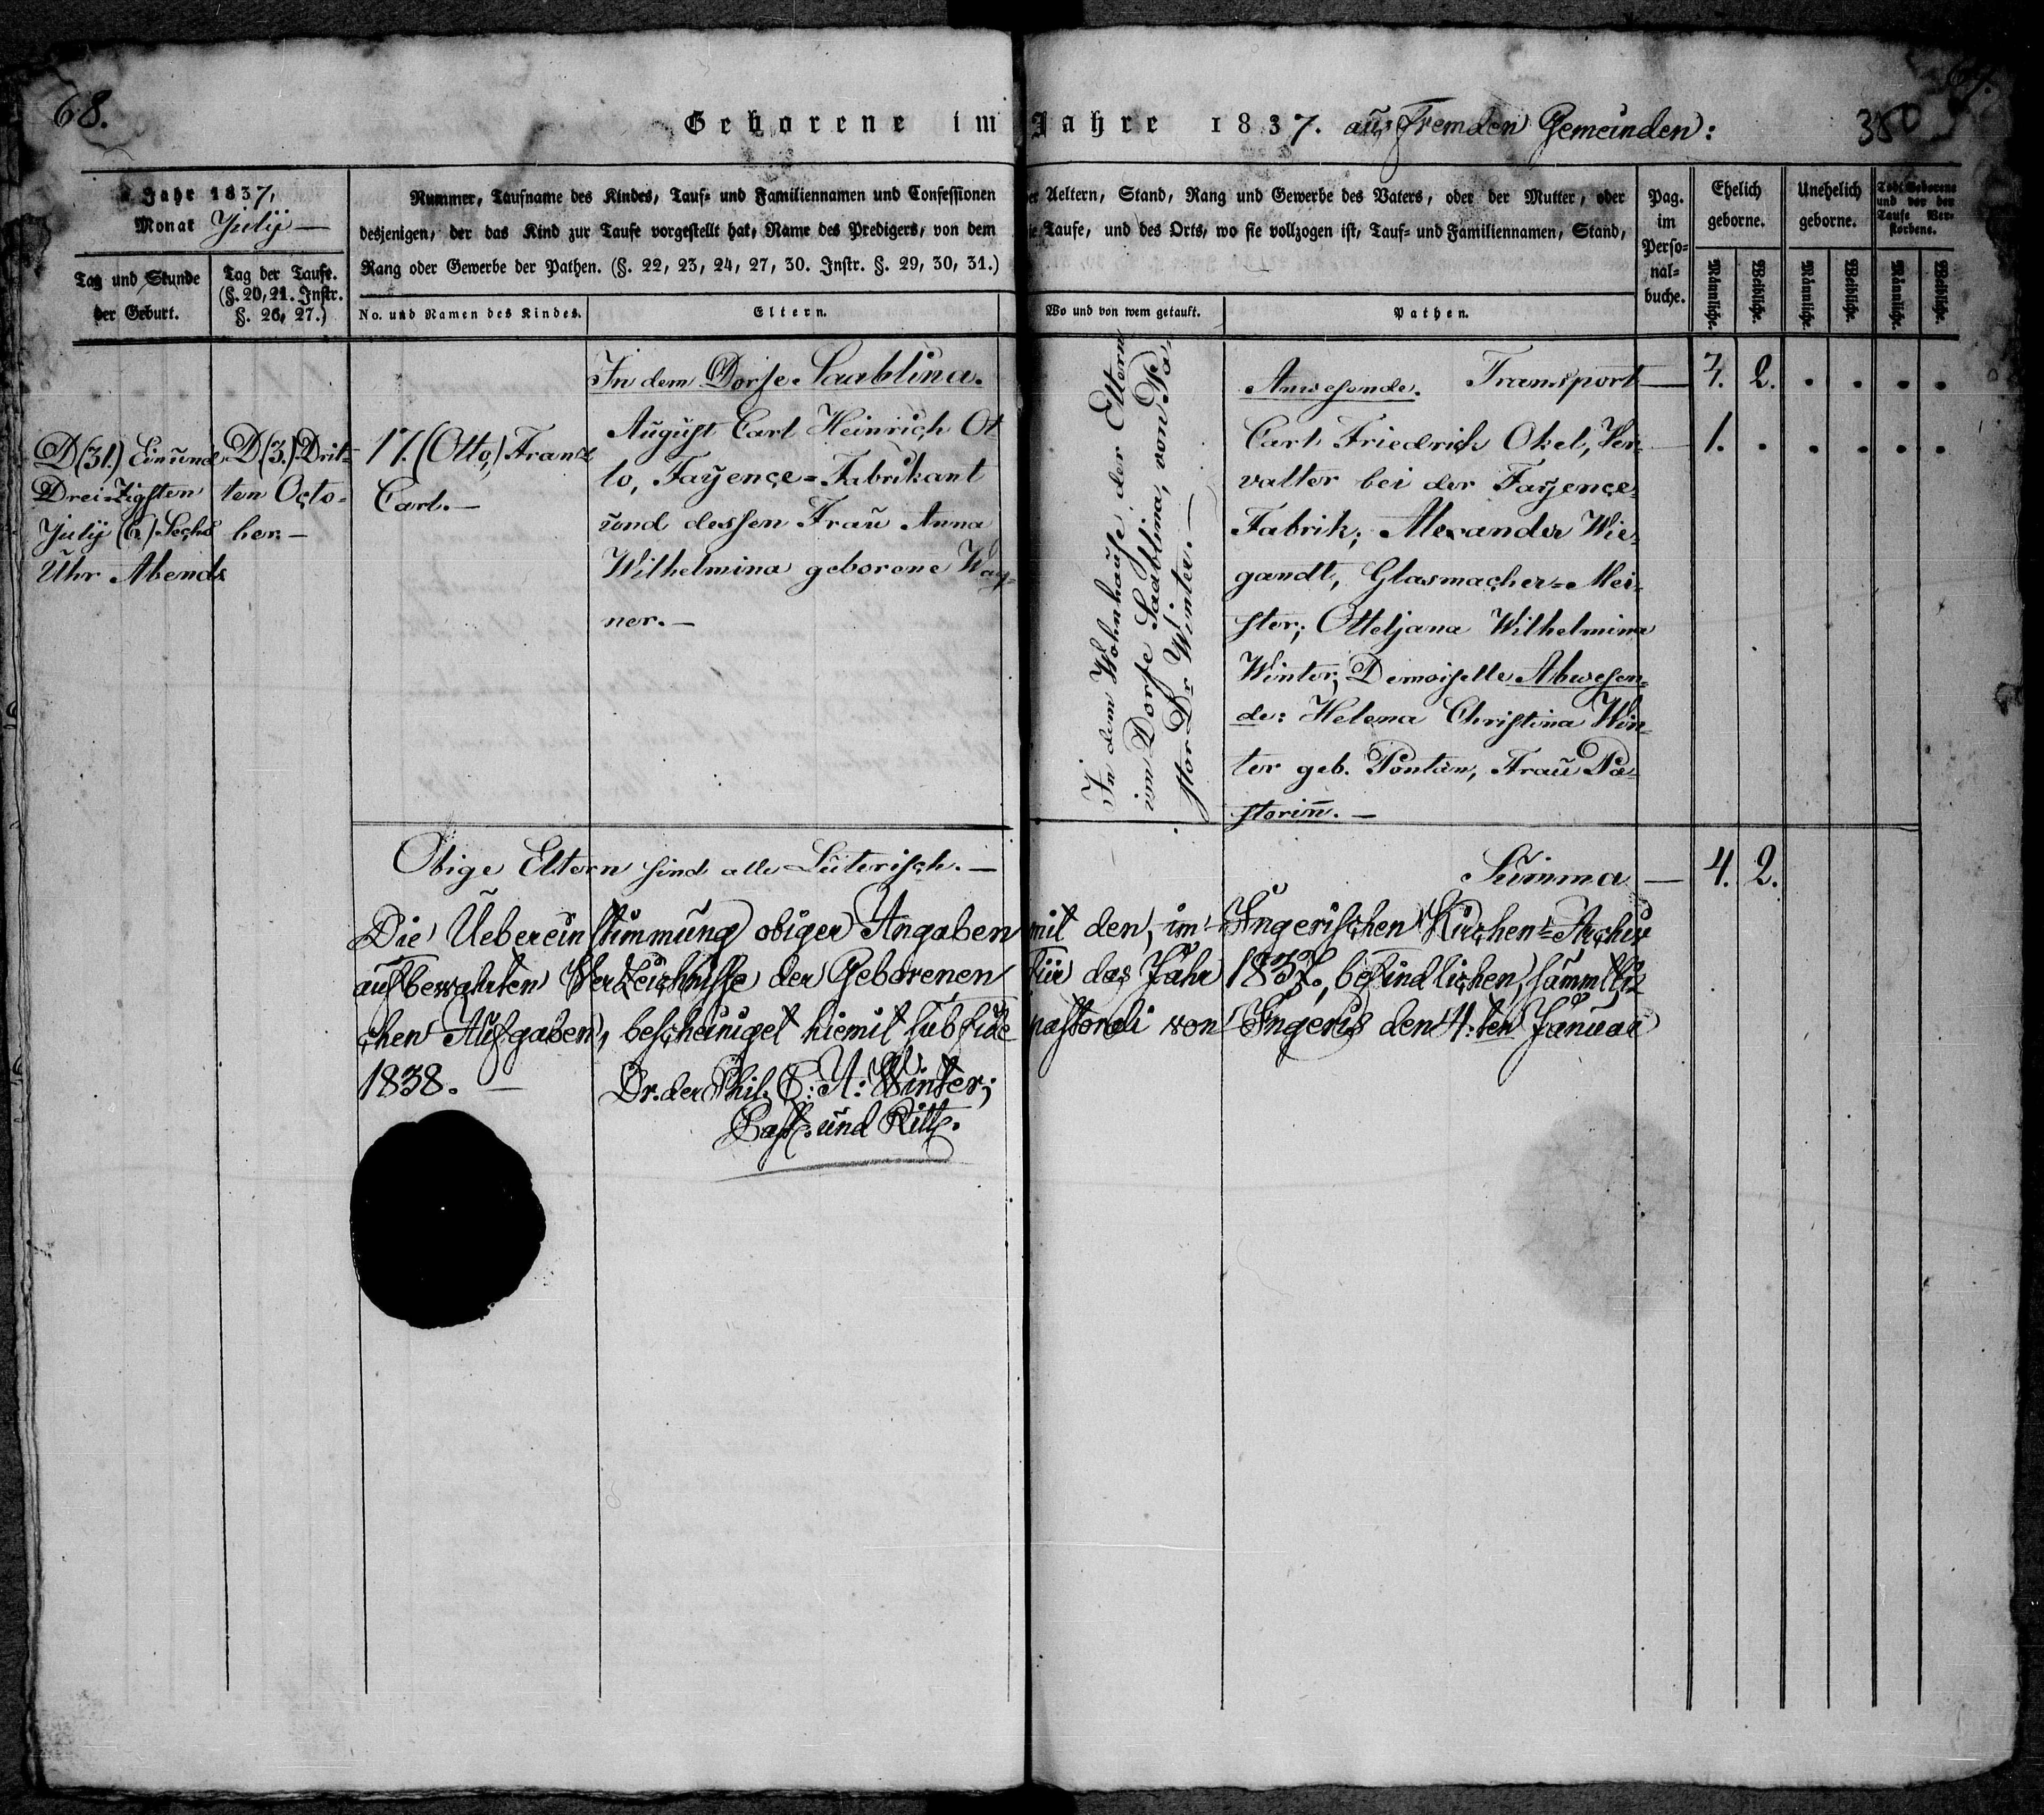 68.
69.
Geborene im Jahre 1837. aus Fremden Gemeinden:
350
Jahr 1837,
Monat Julij —
Tag und Stunde
der Geburt.
Tag der Taufe.
(§. 20, 21. Instr.
§. 26, 27.)
Nummer, Taufname des Kindes, Tauf= und Familiennamen und Confessionen
der Aeltern, Stand, Rang und Gewerbe des Vaters, oder der Mutter, oder
desjenigen, der das Kind zur Taufe vorgestellt hat, Name des Predigers, von dem
die Taufe, und des Orts, wo sie vollzogen ist, Tauf= und Familiennamen, Stand,
Rang oder Gewerbe der Pathen. (§. 22, 23, 24, 27, 30. Instr. §. 29, 30, 31.)
No. und Namen des Kindes.
Eltern.
Wo und von wem getauft.
Pathen.
Pag.
im
Perso=
nal=
buche.
Ehelich
geborne.
Unehelich
geborne.
Todt Geborene
und vor der
Taufe Ver=
storbene.
Männliche.
Weibliche.
Männliche.
Weibliche.
Männliche.
Weibliche.
D (31.) Einund
Dreizigsten
Julij (6.) Sechs
Uhr Abends
D (3.) Drit=
ten Octo=
ber. —
17. (Otto,) Franz
Carl. —
In dem Dorfe Saablina.
August Carl Heinrich Ot
to, Fayençe=Fabrikant
und dessen Frau Anna
Wilhelmina geborene Wag=
ner. —
In dem Wohnhause der Eltern
im Dorfe Saablina, von Pa=
stor Dr Winter. —
Anwesende. Transport — 3. 2. . . . .
Carl Friedrich Okel, Ver= — 1. . . . . .
walter bei der Fayençe=
Fabrik; Alexander Wie=
gandt, Glasmacher=Mei=
ster; Otteljana Wilhelmina
Winter, Demoiselle Abwesen=
de: Helena Christina Win=
ter geb. Pontan, Frau Pa=
storin̄. —
Obige Eltern sind alle Luterisch. —
Summa — 4. 2.
Die Uebereinstimmung obiger Angaben mit den, im Ingerischen Kirchen=Archiv
aufbewahrten Verzeichnisse der Geborenen für das Jahr 1837., befindlichen, sämmtli=
chen Aufgaben, bescheiniget hiemit sub fide pastorali von Ingeris den 4.ten Januar
1838. —
Dr. der Phil. C: A: Winter;
Past. und Ritt.